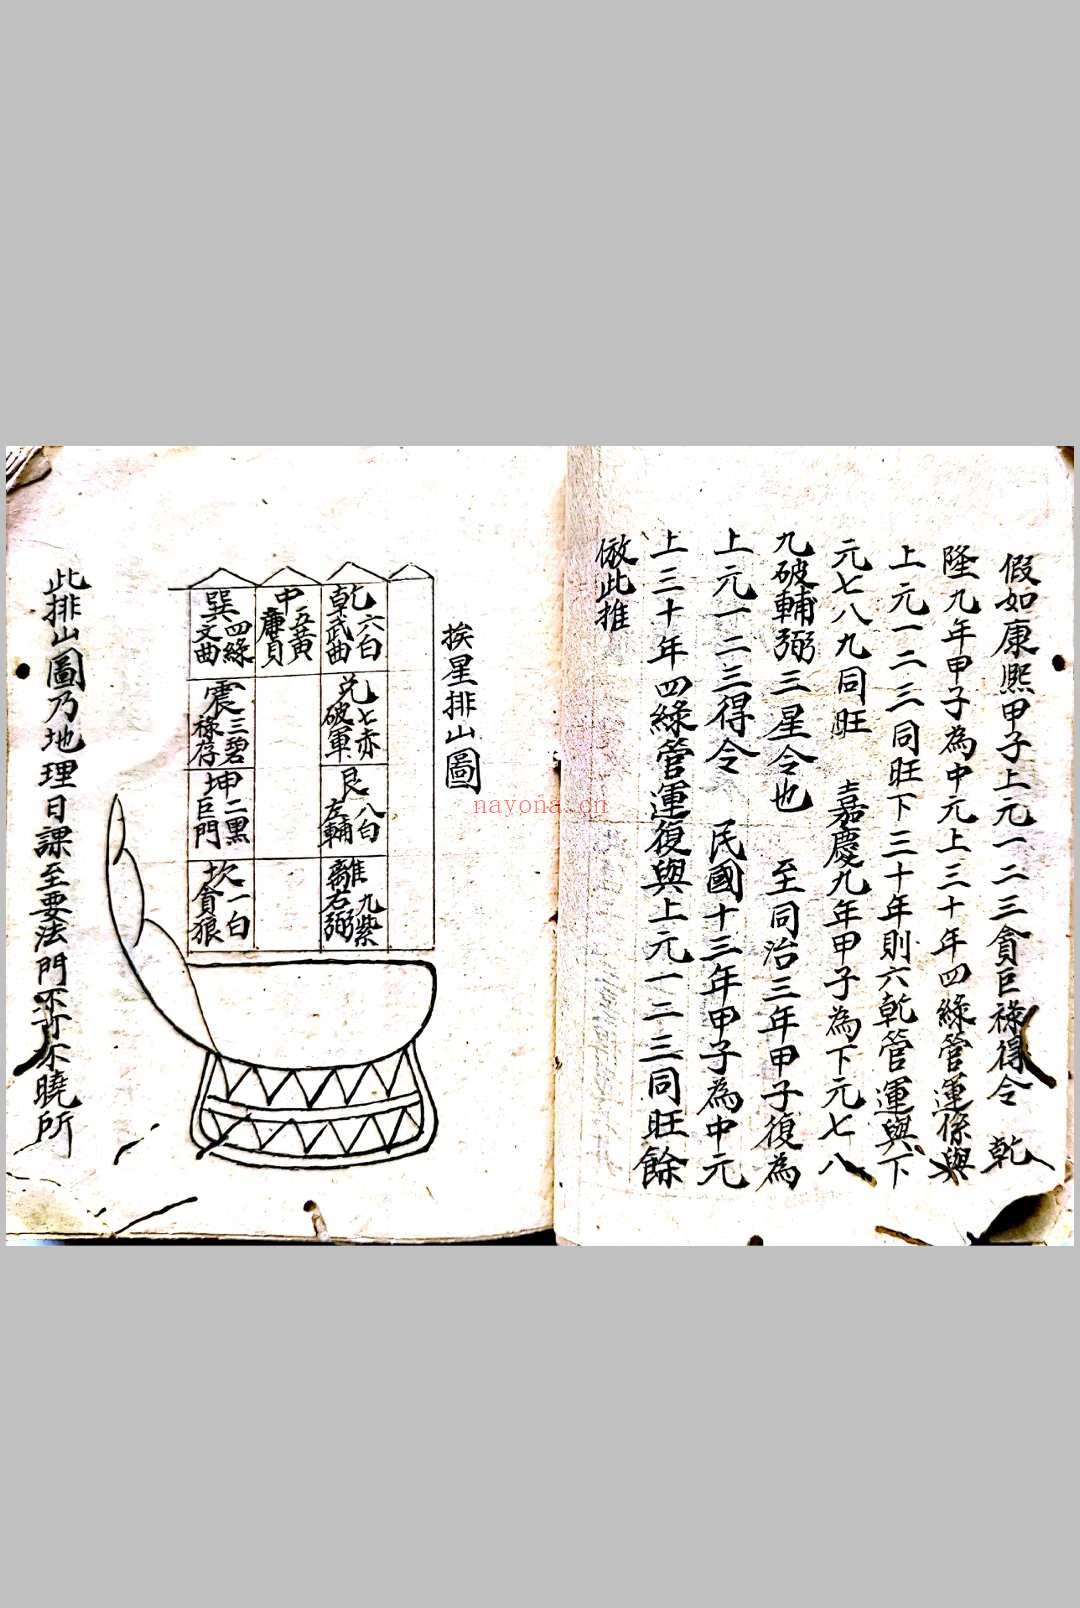 假如康熙甲子上元一二三貪巨祿得令　乾
隆九年甲子為中元上三十年四綠管運係與
上元一二三同旺下三十年則六乾管運與下
元七八九同旺　嘉慶九年甲子為下元七八
九破輔弼三星令也　至同治三年甲子復為
上元一二三得令　民國十三年甲子為中元
上三十年四綠管運復與上元一二三同旺餘
倣此推
挨星排山圖
乾六白
武曲
兌七赤
破軍
艮八白
左輔
離九紫
右弼
中五黃
廉貞
巽四綠
文曲
震三碧
祿存
坤二黑
巨門
坎一白
貪狼
此排山圖乃地理日課至要法門不可不曉所
nayona.cn